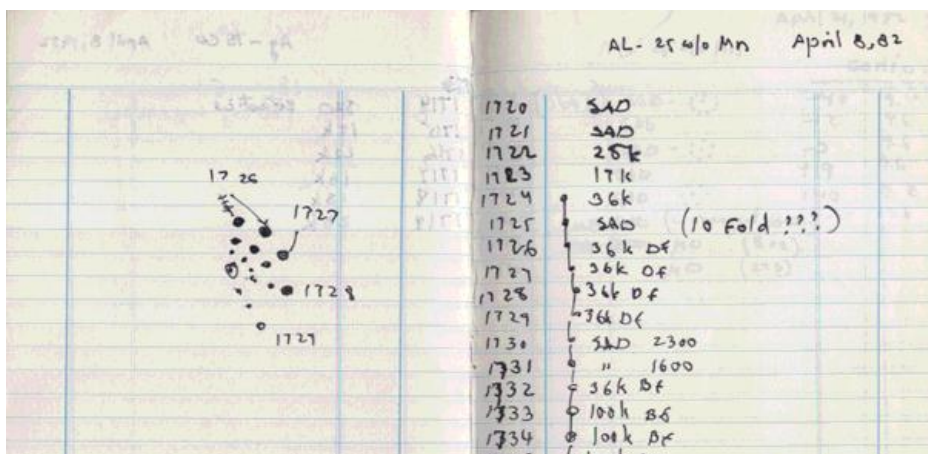 1726
1727
1728
1729
AL-25 w/o Mn April 8, 82
1720 SAD
1721 SAD
1722 25k
1723 17k
1724 36k
1725 SAD (10 Fold ???)
1726 36k Df
1727 36k Df
1728 36k Df
1729 36k Df
1730 SAD 2300
1731 " 1600
1732 36k Bf
1733 100k Bf
1734 100k Bf